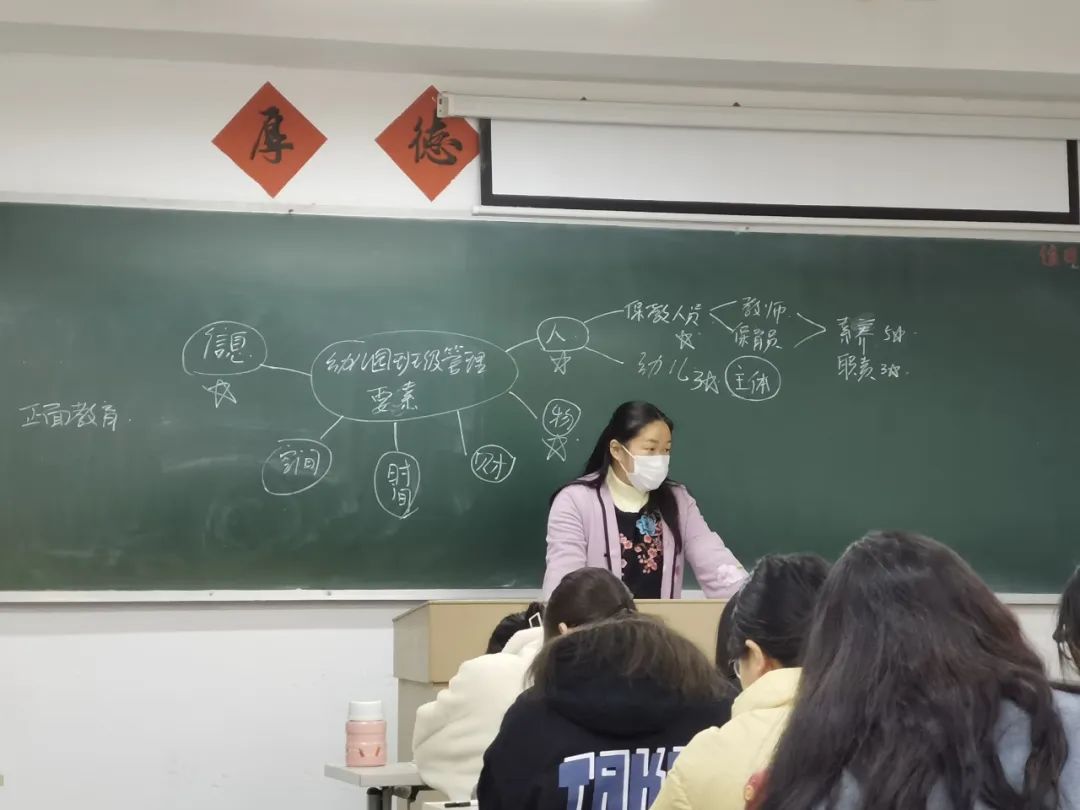 厚
德
信息
幼儿园班级管理
要素
人
保教人员
教师
保育员
素养
职责
幼儿
主体
物
财
时间
空间
正面教育
TAK